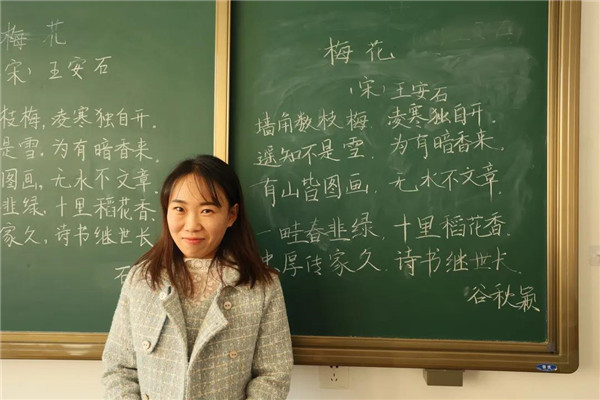 梅花
宋）王安石
枝梅，凌寒独自开．
是雪．为有暗香来．
图画，无水不文章．
韭绿．十里稻花香．
家久，诗书继世长
梅花
（宋）王安石
墙角数枝梅．凌寒独自开．
遥知不是雪．为有暗香来．
有山皆图画，无水不文章．
一畦春韭绿．十里稻花香．
忠厚传家久．诗书继世长．
谷秋颖